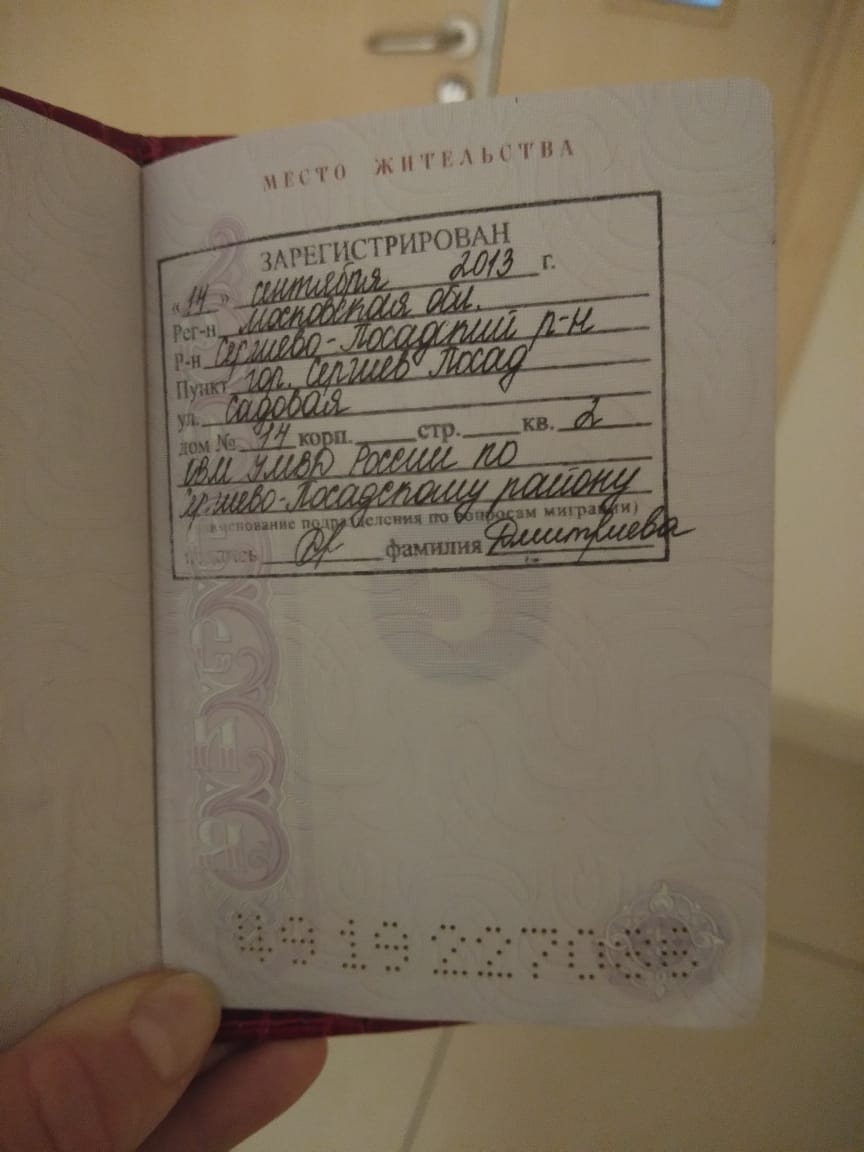 МЕСТО ЖИТЕЛЬСТВА
ЗАРЕГИСТРИРОВАН
« 14 » сентября 2013 г.
Рег-н Московская обл.
Р-н Сергиево-Посадский р-н
Пункт гор. Сергиев Посад
ул. Садовая
дом № 14 корп. стр. кв. 2
ОВМ УМВД России по
Сергиево-Посадскому району
(наименование подразделения по вопросам миграции)
подпись фамилия Дмитриева
49 19 2270